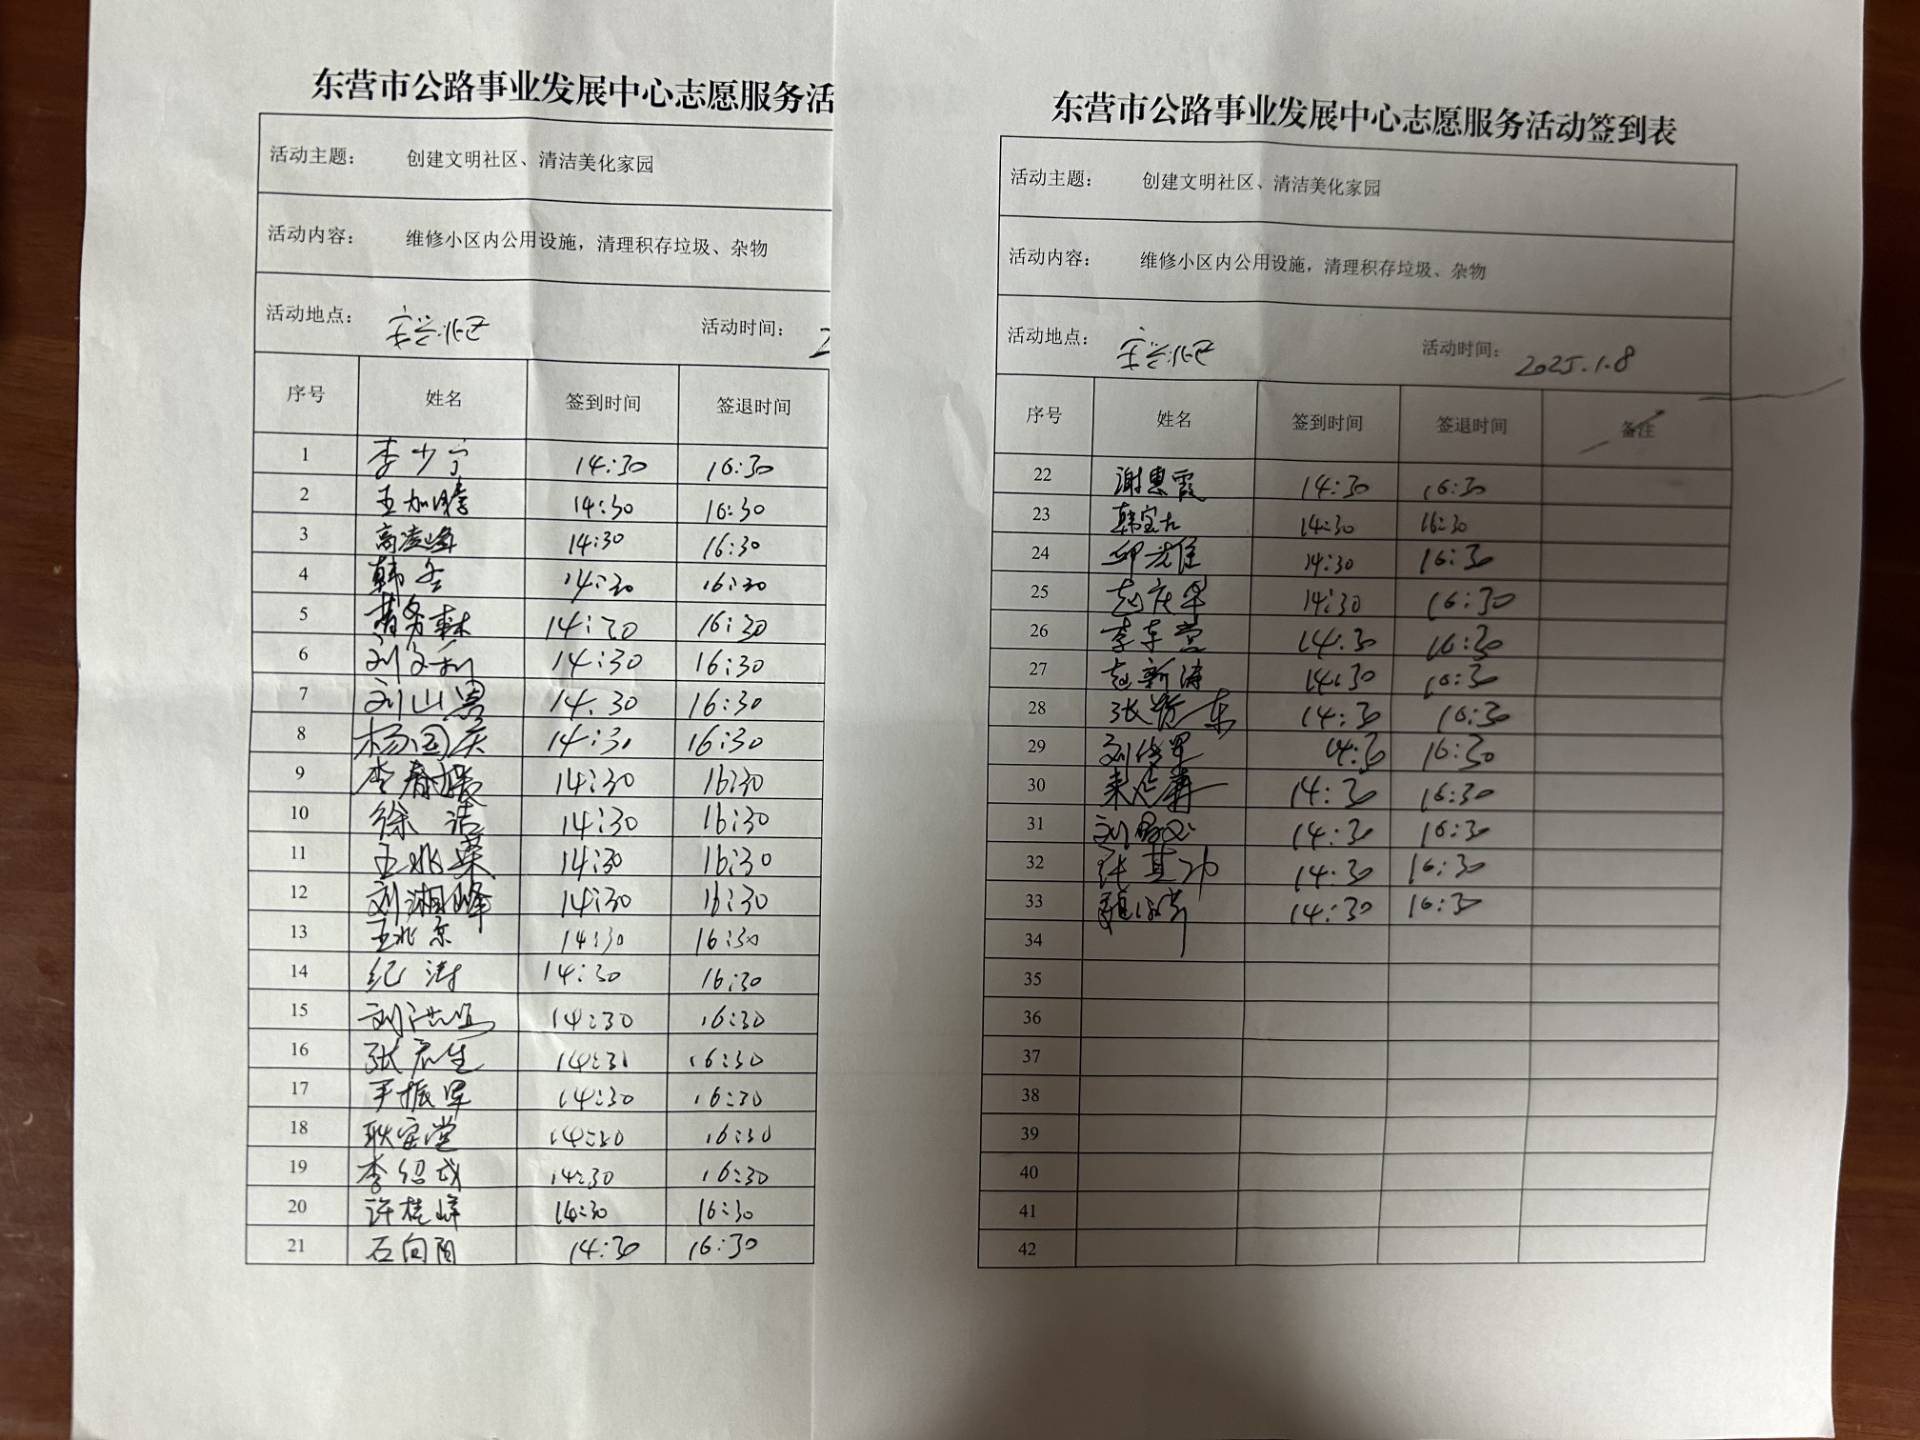 东营市公路事业发展中心志愿服务活
活动主题： 创建文明社区、清洁美化家园
活动内容： 维修小区内公用设施，清理积存垃圾、杂物
活动地点： 活动时间： 2
序号 姓名 签到时间 签退时间
1 李少宁 14:30 16:30
2 14:30 16:30
3 高凌峰 14:30 16:30
4 韩冬 14:30 16:30
5 14:30 16:30
6 刘文利 14:30 16:30
7 刘山 14.30 16:30
8 杨国庆 14:30 16:30
9 李春 14:30 16:30
10 徐洁 14:30 16:30
11 王兆荣 14:30 16:30
12 刘湘峰 14:30 16:30
13 王兆京 14:30 16:30
14 纪涛 14:30 16:30
15 刘洪 14:30 16:30
16 张 生 14:31 16:30
17 尹振军 14:30 16:30
18 耿安堂 14:30 16:30
19 李绍成 14:30 16:30
20 许桂峰 14:30 16:30
21 石向阳 14:30 16:30
东营市公路事业发展中心志愿服务活动签到表
活动主题： 创建文明社区、清洁美化家园
活动内容： 维修小区内公用设施，清理积存垃圾、杂物
活动地点： 活动时间： 2025.1.8
序号 姓名 签到时间 签退时间 备注
22 谢惠霞 14:30 16:30
23 韩宝 14:30 16:30
24 邱光 14:30 16:30
25 赵庆 14:30 16:30
26 李东营 14:30 16:30
27 赵新涛 14:30 16:30
28 张 东 14:30 16:30
29 刘 军 14:30 16:30
30 14:30 16:30
31 刘 14:30 16:30
32 张其功 14:30 16:30
33 14:30 16:30
34
35
36
37
38
39
40
41
42